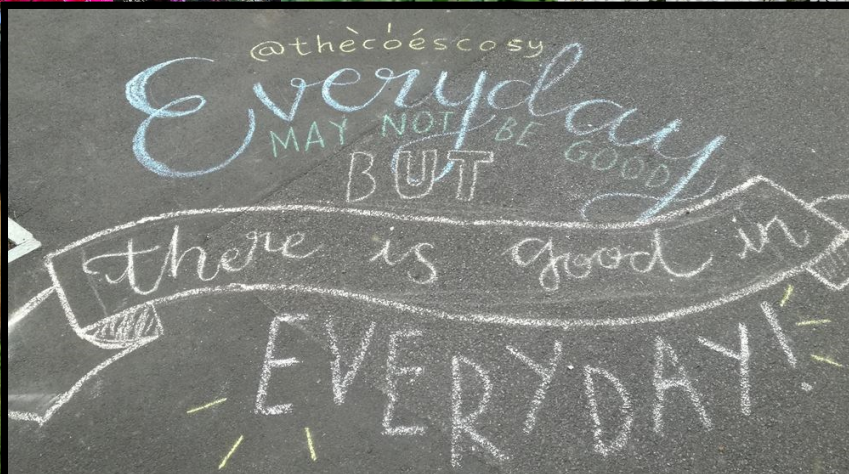 @thècóéscosy
Everyday
MAY NOT BE GOOD
BUT
there is good in
EVERYDAY!